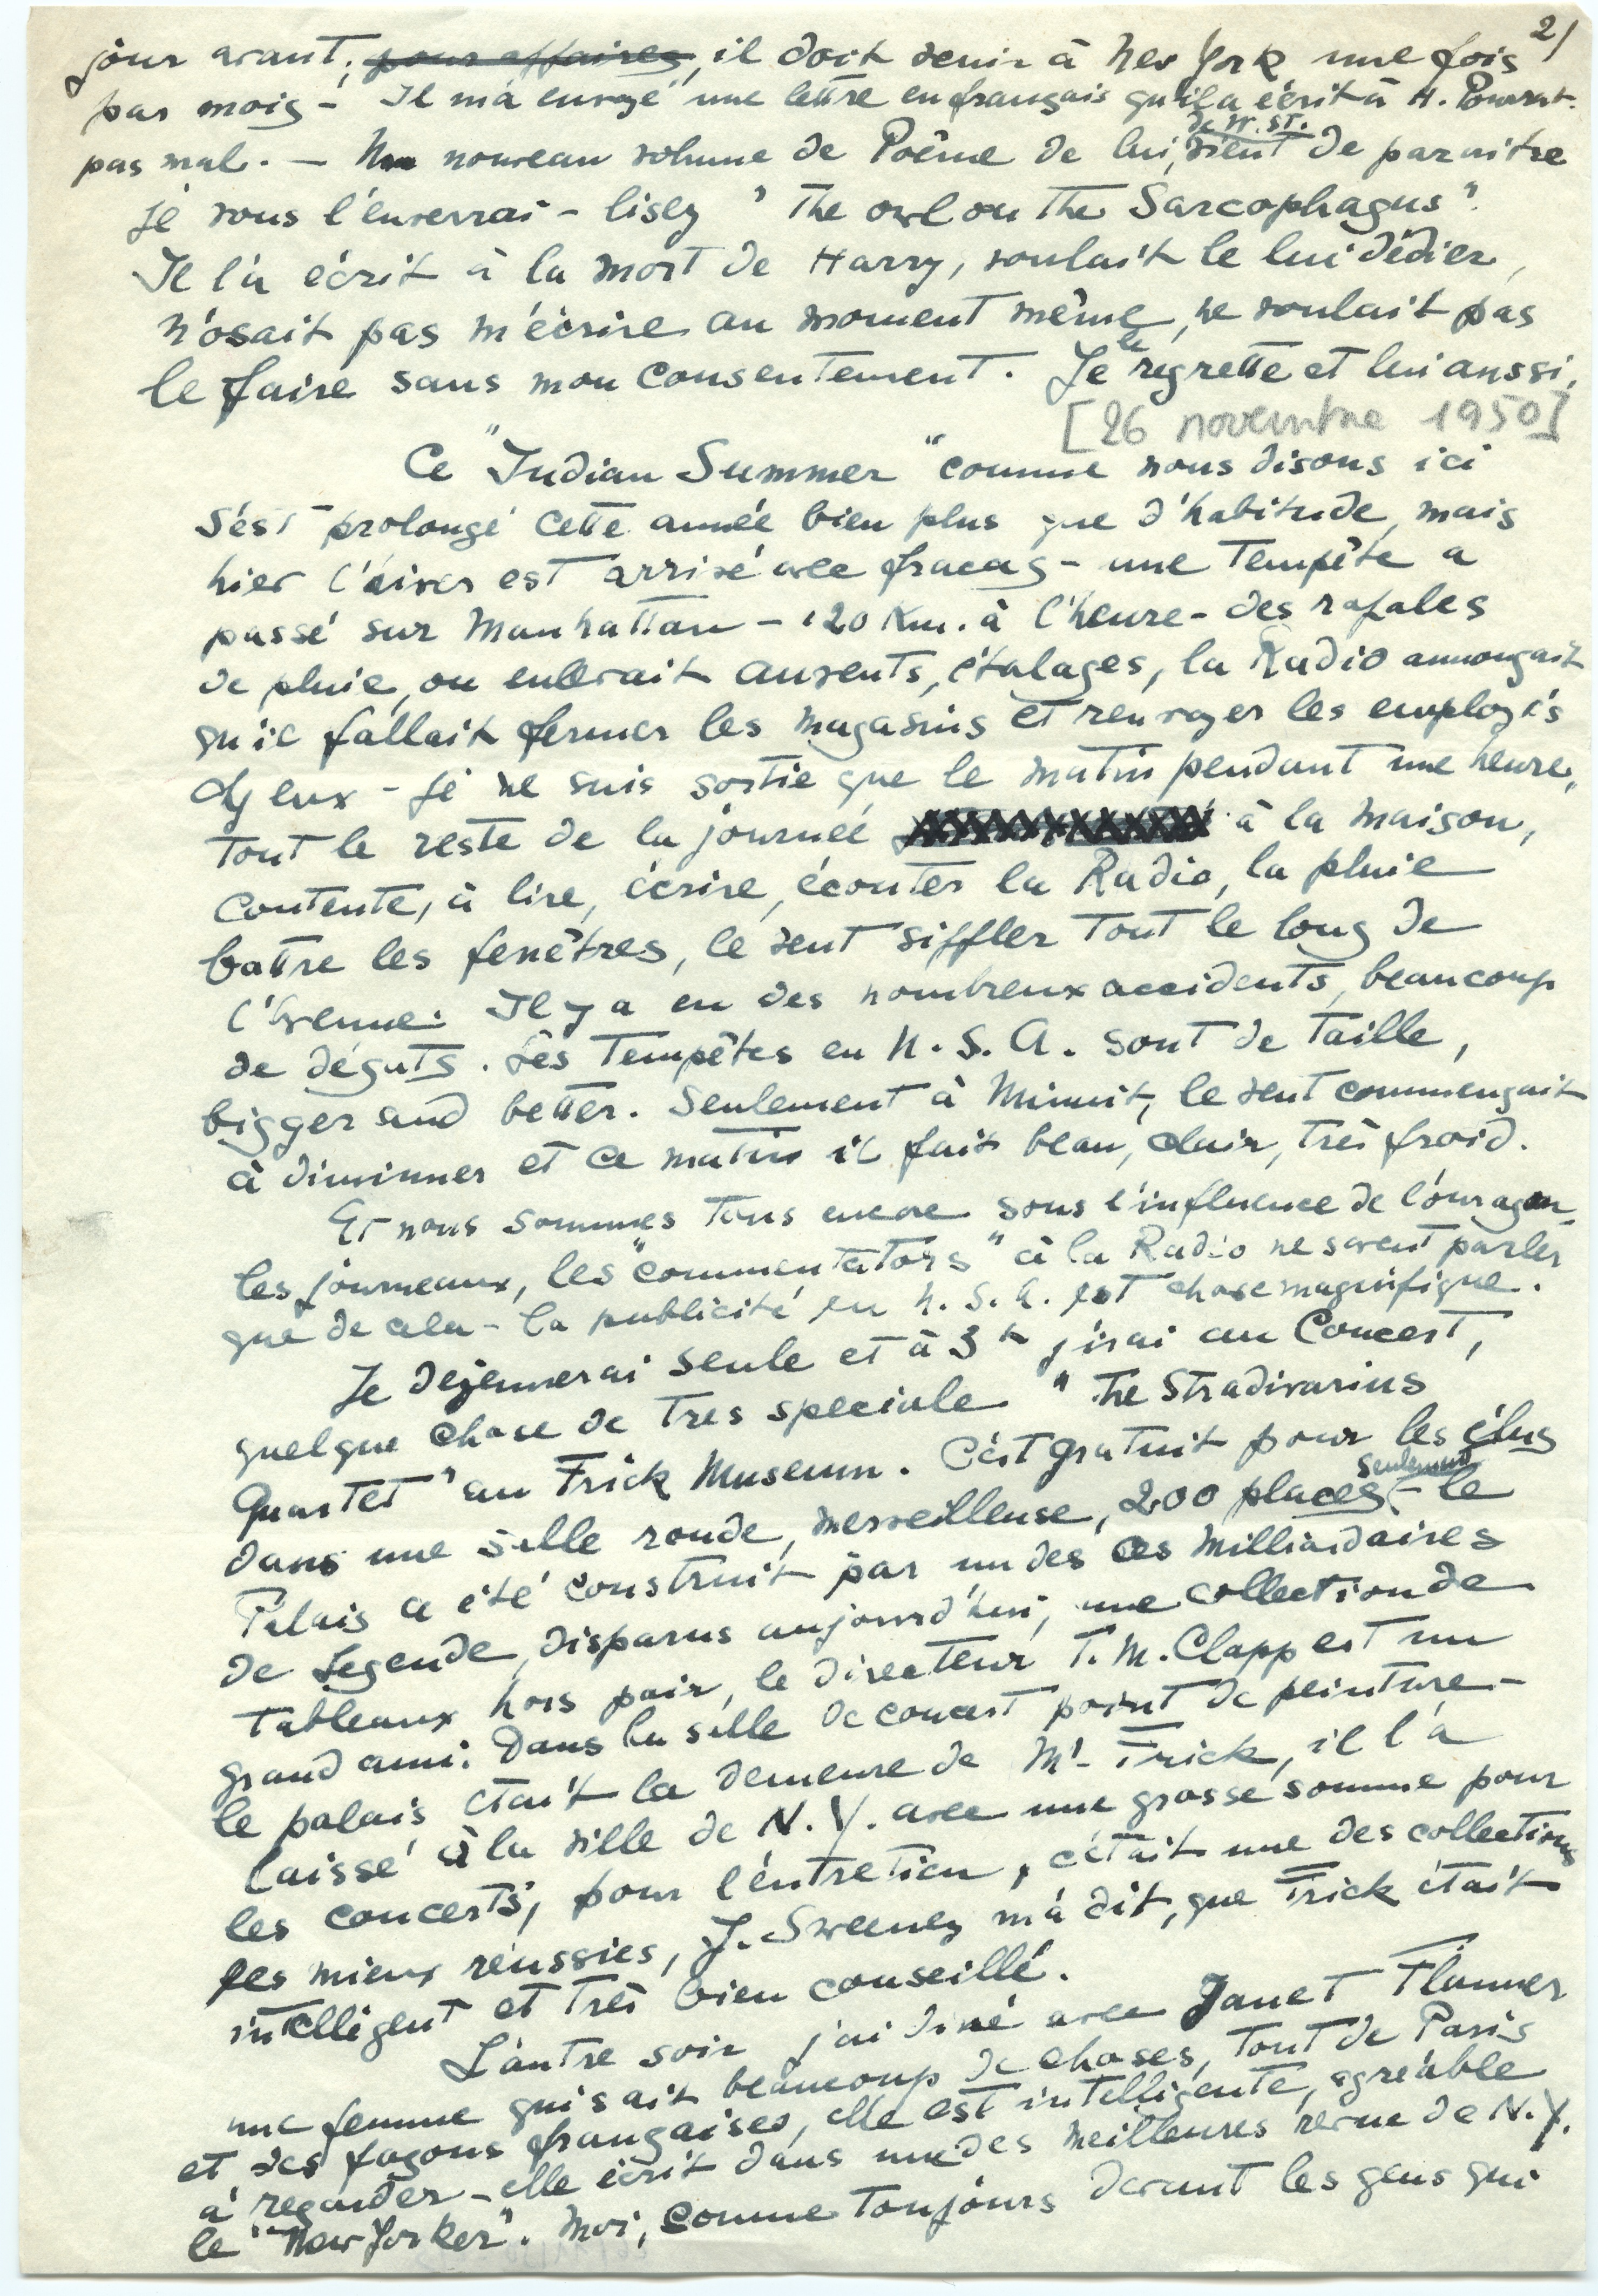 2/
jour avant, pour affaires, il doit venir à New York une fois
par mois - Il m'a envoyé une lettre en français qu'il a écrit à H. Pourrat.
de W. ST.
pas mal. — Un nouveau volume de Poême de lui, vient de paraitre
je vous l'enverrai - lisez "The owl on the Sarcophagus".
Il l'a écrit à la mort de Harry, voulait le lui dédier,
n'osait pas m'écrire au moment même, ne voulait pas
le faire sans mon consentement. Je le regrette et lui aussi.
[26 novembre 1950]
Ce "Indian Summer" comme nous disons ici
s'est prolongé cette année bien plus que d'habitude, mais
hier l'hiver est arrivé avec fracas - une Tempête a
passé sur Manhattan - 120 Km. à l'heure - des rafales
de pluie, on enlevait auvents, étalages, la Radio annonçait
qu'il fallait fermer les magasins et renvoyer les employés
chez eux - je ne suis sortie que le matin pendant une heure,
tout le reste de la journée à la maison,
contente, à lire, écrire, écouter la Radio, la pluie
battre les fenêtres, le vent siffler tout le long de
l'Avenue. Il y a eu des nombreux accidents, beaucoup
de dégats. Les Tempêtes en U.S.A. sont de taille,
bigger and better. Seulement à Minuit, le vent commençait
à diminuer et ce matin il fait beau, clair, très froid.
Et nous sommes tous encore sous l'influence de l'ouragan -
les journeaux, les "commentators" à la Radio ne savent parler
que de cela - la publicité en U.S.A. est chose magnifique.
Je dejeunerai seule et à 3h j'irai au Concert,
quelque chose de tres speciale "The Stradivarius
Quartet" au Frick Museum. C'est gratuit pour les élus
dans une salle ronde, merveilleuse, 200 places seulement - le
Palais a été construit par un des ces Milliardaires
de Legende, disparus aujourd'hui, une collection de
tableaux hors pair, le directeur T. M. Clapp est un
grand ami. Dans la salle de concert point de peinture -
le palais était la demeure de Mr. Frick, il l'a
laissé à la ville de N.Y. avec une grosse somme pour
les concerts, pour l'entretien, c'était une des collections
les mieux réussies, J. Sweeney m'a dit, que Frick était
intelligent et très bien conseillé.
L'autre soir j'ai diné avec Janet Flanner
une femme qui sait beaucoup de choses, tout de Paris
et des façons françaises, elle est intelligente, agréable
à regarder - elle écrit dans une des meilleures revue de N.Y.
le "New Yorker". Moi, comme toujours devant les gens qui